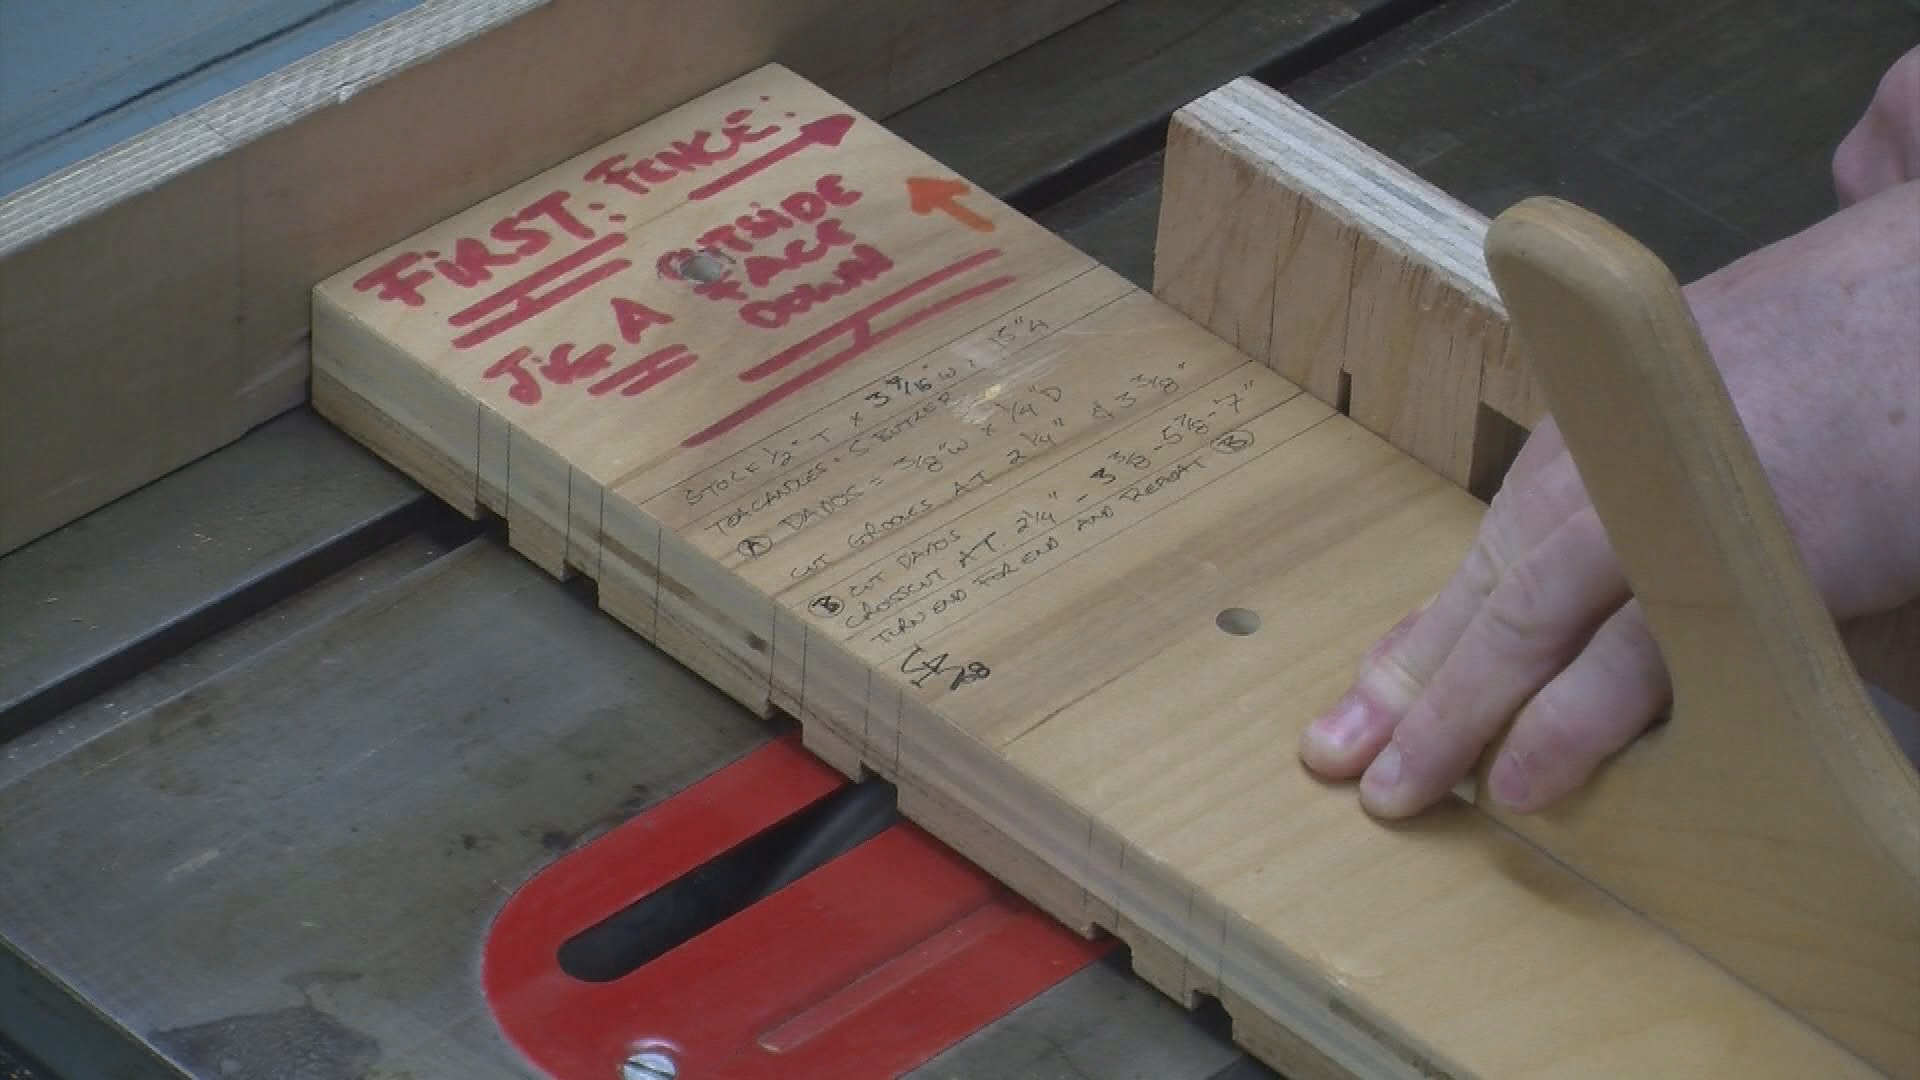 FIRST: FENCE:
JIG A OUTSIDE
FACE
DOWN
STOCK 1/2" T × 3 9/16" W × 15" 
(A) DADOS = 3/8" W × 1/4" D
CUT GROOVES AT 2 1/4" & 3 3/8"
(B) CUT DADOS
CROSSCUT AT 2 1/4" - 3 3/8 - 5 7/8 - 7"
TURN END FOR END AND REPEAT (B)